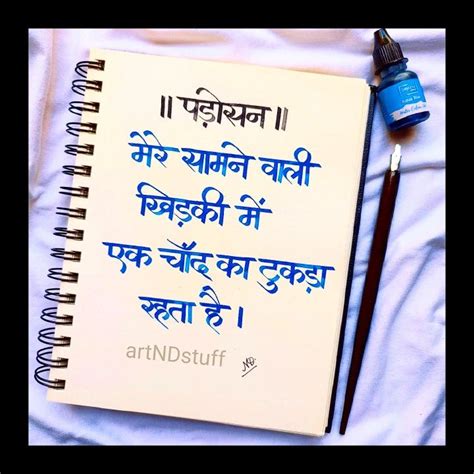 ॥ पड़ोसन ॥
मेरे सामने वाली
खिड़की में
एक चाँद का टुकड़ा
रहता है ।
artNDstuff